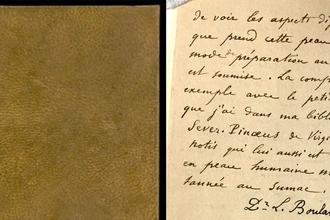 de voir les aspects dif
que prend cette peau
mode de préparation au
est soumise. La comp
exemple avec le peti
que j'ai dans ma bibl
Sever. Pinæus de Virg
notis qui lui aussi et
en peau humaine m
tannée au Sumac.
Dr L. Boula